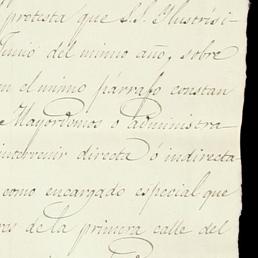 protesta que S.S. Ilustrísi-
Junio del mismo año, sobre
en el mismo párrafo constan
Mayordomos o administra
intervenir directa ó indirecta
como encargado especial que
de la primera calle del